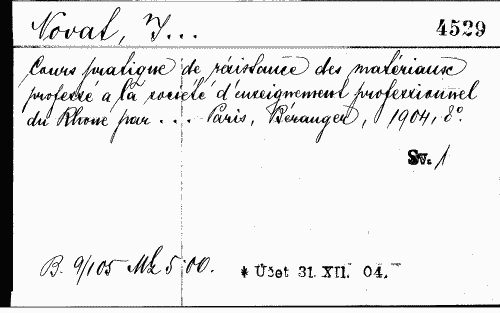 Novat, J...
4529
Cours pratique de résistance des matériaux
professé a la société d'enseignement professionnel
du Rhone par ... Paris, Béranger, 1904, 8°.
Sv. 1
B. 9/105 Mk 5.00.
* Účet 31. XII. 04.